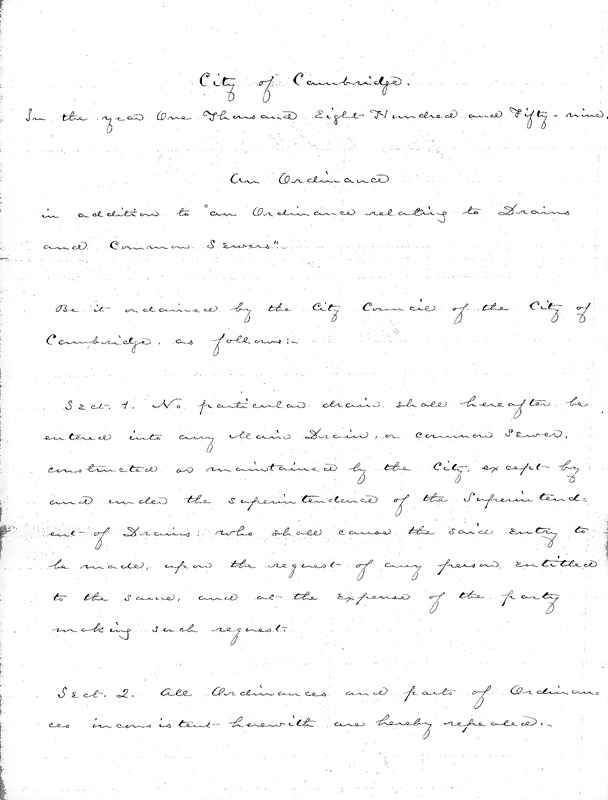 City of Cambridge.
In the year One Thousand Eight Hundred and Fifty-nine.
An Ordinance
in addition to "an Ordinance relating to Drains
and Common Sewers".-
Be it ordained by the City Council of the City of
Cambridge, as follows:-
Sect. 1. No particular drain shall hereafter be
entered into any Main Drain, or common Sewer,
constructed or maintained by the City, except by
and under the superintendance of the Superintend=
ent of Drains: who shall cause the said entry to
be made, upon the request of any person entitled
to the same, and at the expense of the party
making such request.
Sect. 2. All Ordinances and parts of Ordinan=
ces inconsistent herewith are hereby repealed.-